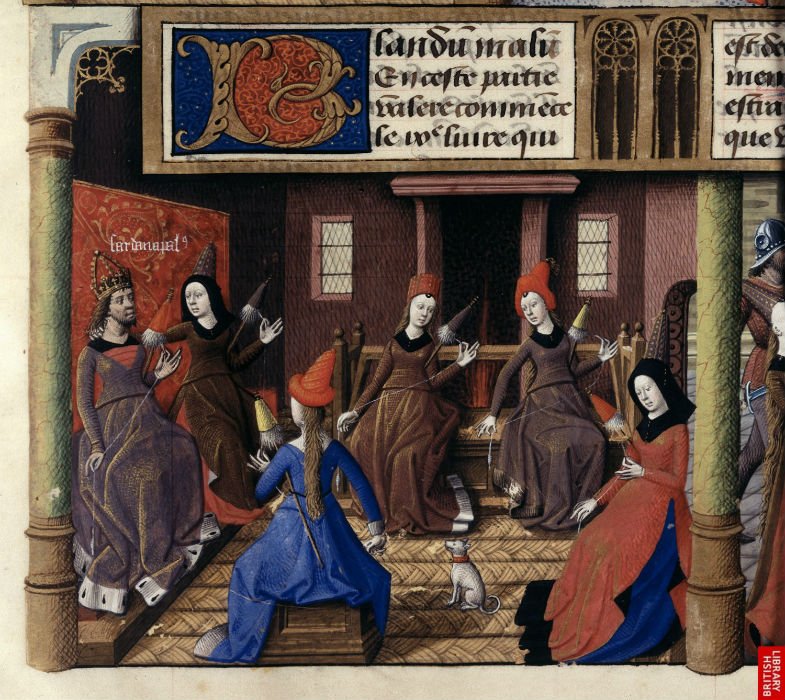 landũ malũ
En ceste partie
va sere commẽce
le ixᵉ liure qui
est de
men
estra
que
sardanapalꝰ
BRITISH
LIBRARY